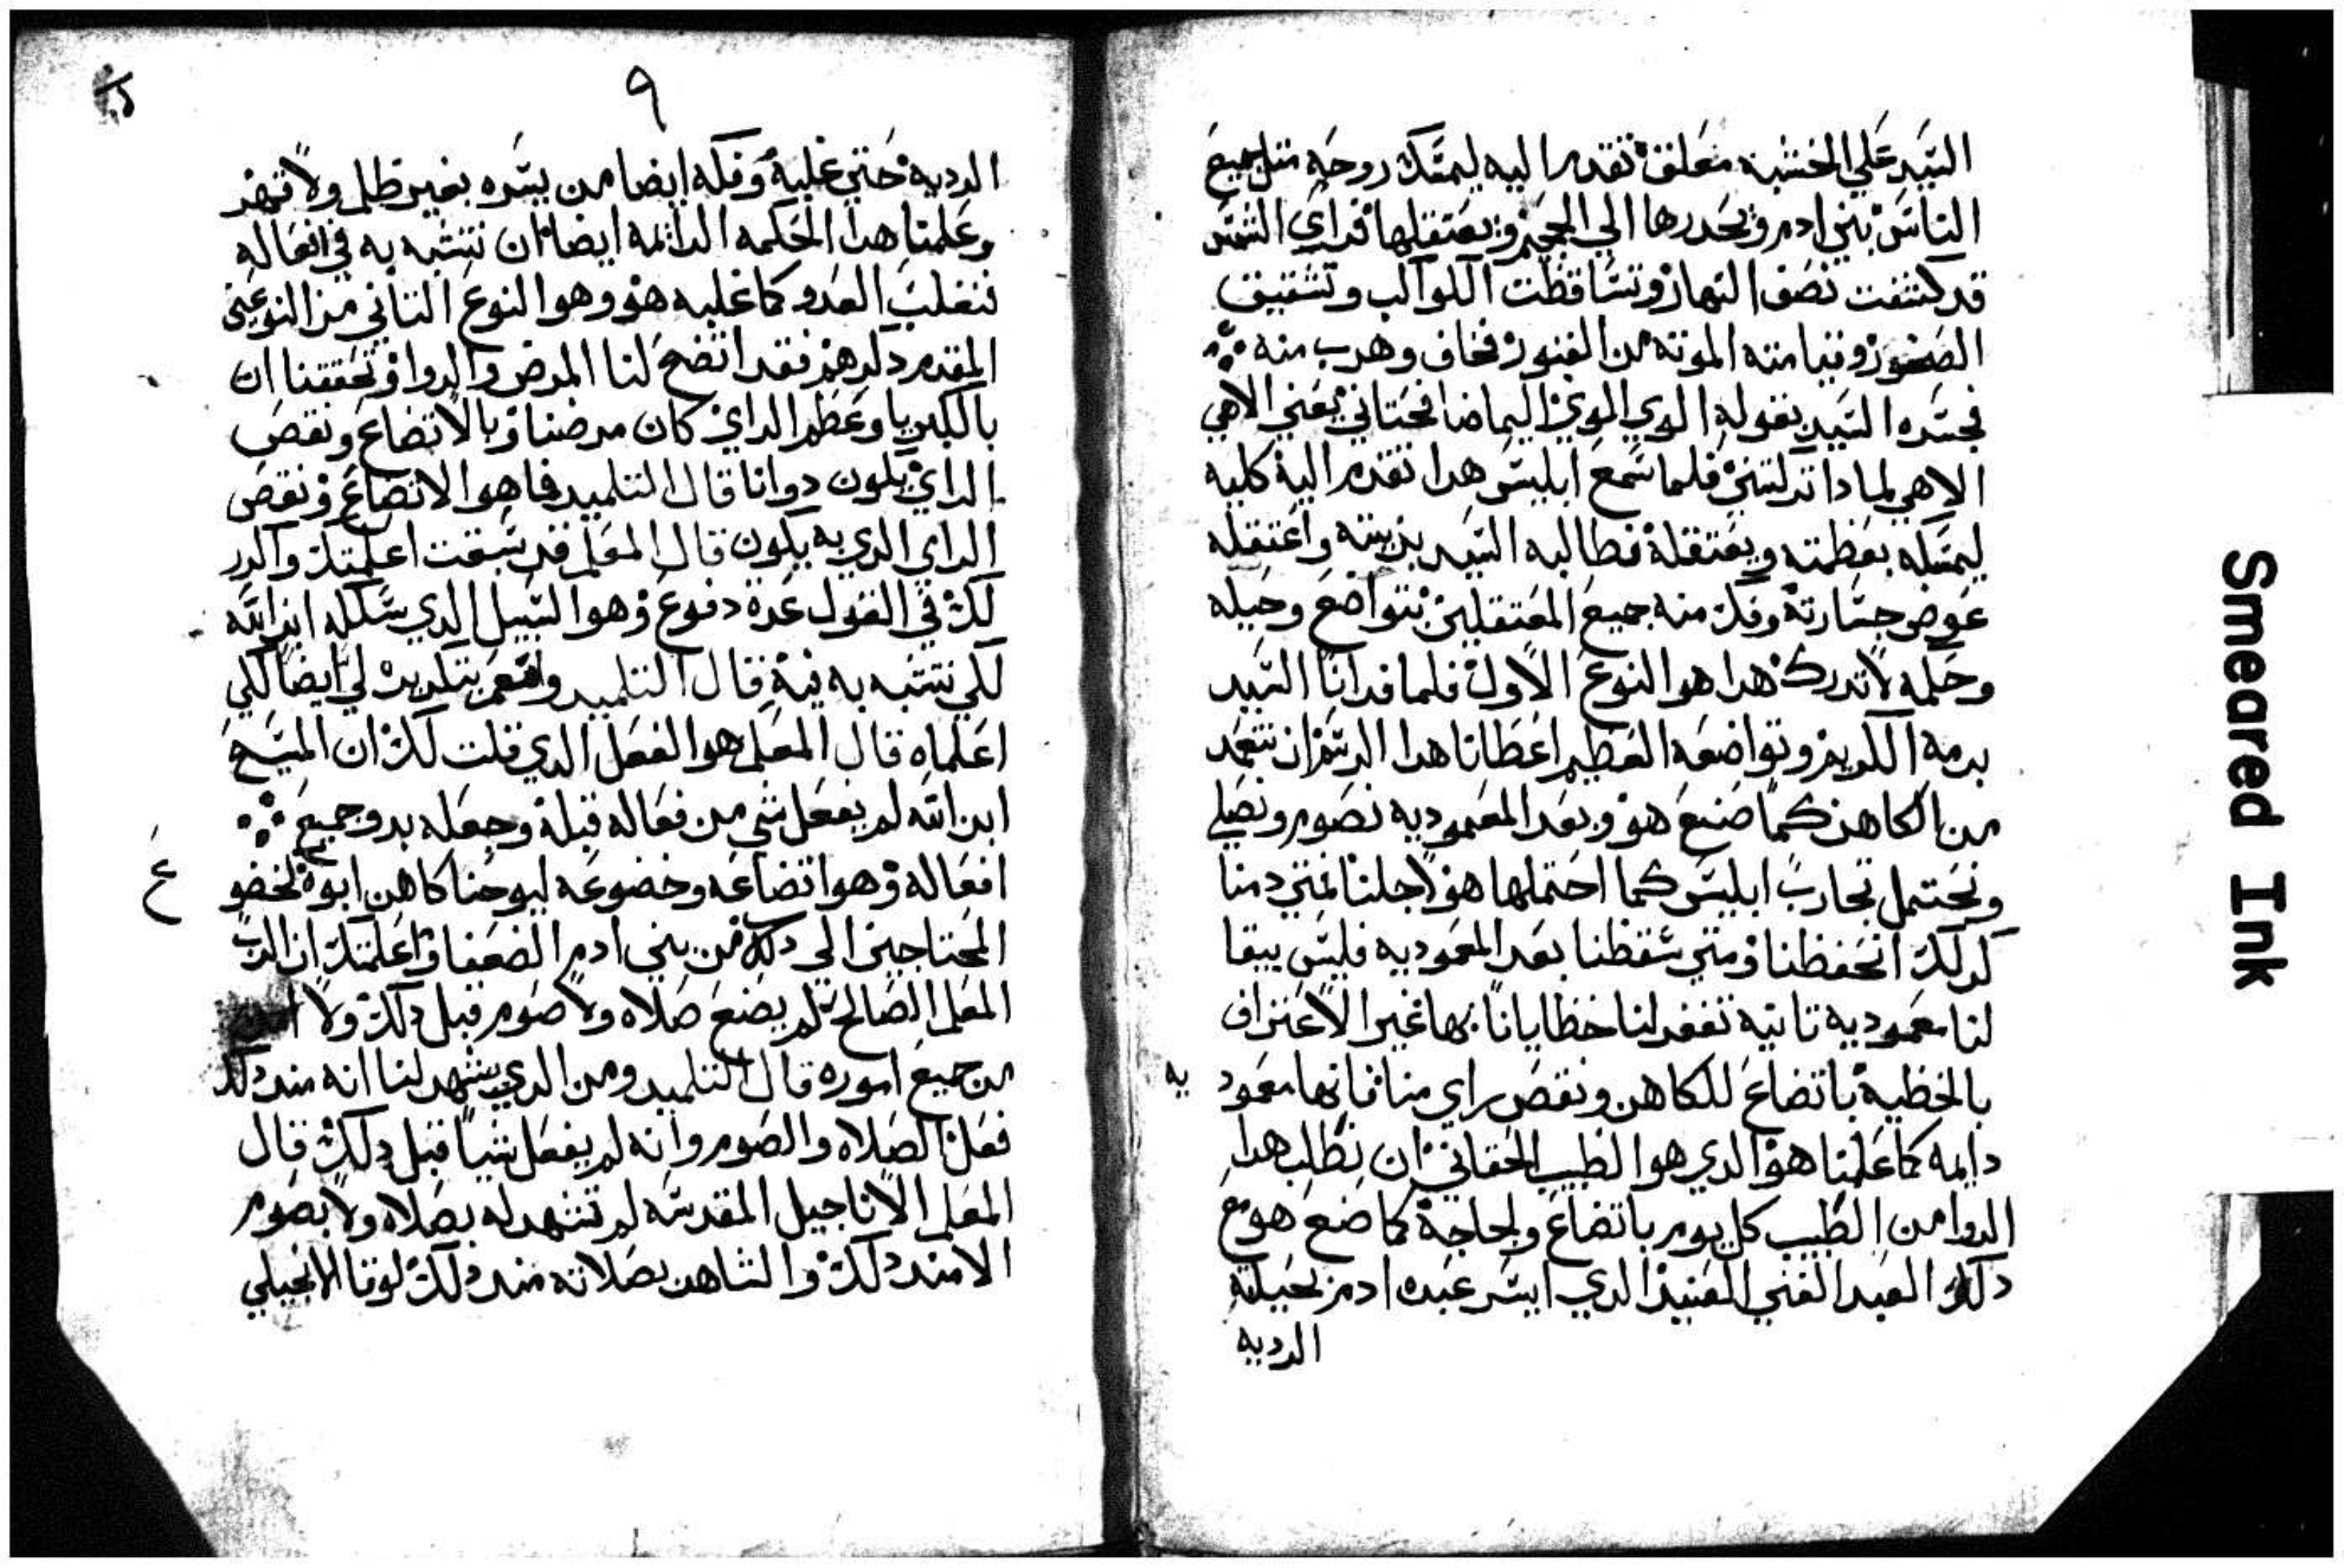 السيد علي الخشبه معلقة تقدم اليه ليمسك روحه متل جميع
الناس بني ادم ويحدرها الي الجحيم ويعتقلها فراي الشمس
قد كسفت نصف النهار وتساقطت الكواكب وتشقيق
الصخور وقيامته الموته من القبور فخاف وهرب منه
فجسره السيد بقوله الوي الوي اليما صافحتاني يعني الاهي
الاهي لمادا تركتني فلما سمع ابليس هدا تقدم اليه كليه
ليمسكه بعظمته ويعتقله فطالبه السيد بزيته واعتقله
عوض جسارته وفك منه جميع المعتقلين بتواضع وحيله
وحكمه لا تدرك هدا هو النوع الاول فلما فدانا السيد
بدمه الكريم وتواضعه العظيم اعطانا هدا الرسم ان نتعمد
من الكاهن كما صنع هو وبعد المعموديه نصوم ونصلي
ونحتمل تجارب ابليس كما احتملها هو لاجلنا فمتي دمنا
كدلك انحفظنا ومتي سقطنا بعد المعموديه فليس يبقا
لنا معموديه تانيه تغفر لنا خطايانا بها غير الاعتراف
بالخطية باتضاع للكاهن ونقص راي منا فانها معمود يه
دايمه كما علمنا هو الدي هوا الطبيب الحقاني ان نطلب هدا
الدوا من الطبيب كل يوم باتضاع ولجاجة كما صنع هو مع
دلك العبد الغني العنيد الدي ايسر عبده ادم بحيلته
الرديه
٩
الرديه حتي غلبه وفكه ايضا من يسره بغير ظلم ولا قهر
وعلمنا هدا الحكمه الدايمه ايضا ان نتشبه به في افعاله
فنغلب العدو كما غلبه هو وهو النوع التاني من النوعين
المقدم دكرهم فقد اتضح لنا المرض والدوا وتحققنا ان
بالكبريا وعظم الراي كان مرضنا وبالاتضاع ونقص
الراي يكون دوانا قال التلميد فما هوا الاتضاع ونقص
الراي الدي به يكون قال المعلم قد سبقت اعلمتك واكرر
لك في القول عدة دفوع وهوا السبيل الدي سلكه ابن الله
لكي نتشبه به فيه قال التلميد وانعم بتكريره لي ايضا لكي
اعلماه قال المعلم هوا الفعل الدي قلت لك ان المسيح
ابن الله لم يفعل شي من فعاله قبله وجعله بدو جميع
افعاله وهوا اتضاعه وخضوعه ليوحنا كاهن ابوه لخضو ع
المحتاجين الي دلك من بني ادم الضعفا واعلمتك ان الرب
المعلم الصالح لم يصنع صلاه ولا صوم قبل دلك ولا
من جميع اموره قال التلميد ومن الدي يشهد لنا انه مند دلك
فعل الصلاه والصوم وانه لم يفعل شيا قبل دلك قال
المعلم الاناجيل المقدسه لم تشهد له بصلاه ولا بصوم
الا مند دلك والشاهد بصلاته مند دلك لوقا الانجيلي
Smeared Ink